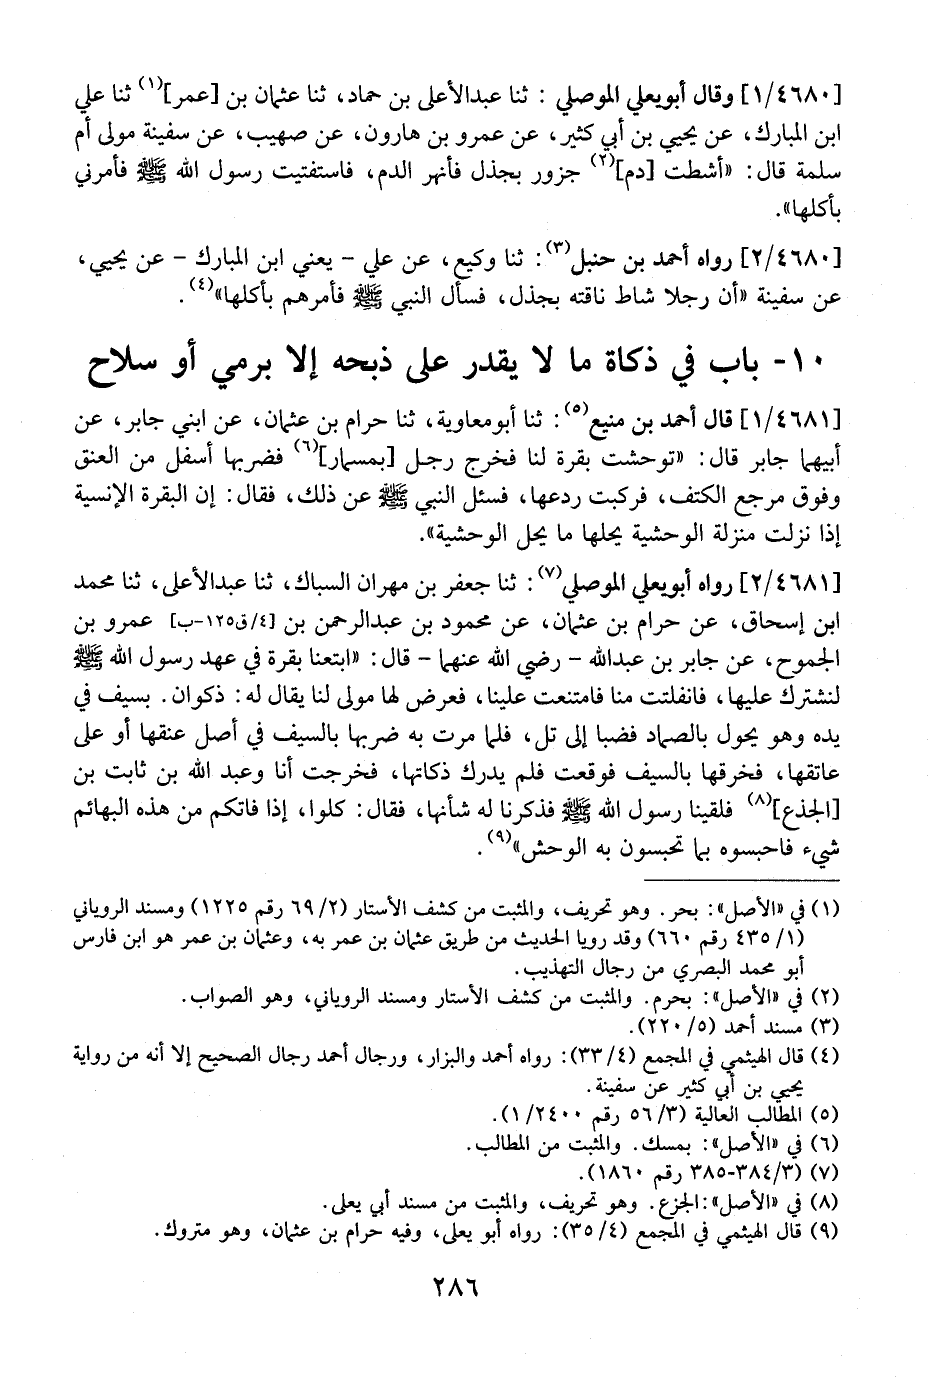 [١/٤٦٨٠] وقال أبويعلى الموصلي : ثنا عبدالأعلى بن حماد، ثنا عثمان بن [عمر](١) ثنا علي
ابن المبارك، عن يحيى بن أبي كثير، عن عمرو بن هارون، عن صهيب، عن سفينة مولى أم
سلمة قال: «أشطت [دم](٢) جزور بجذل فأنهر الدم، فاستفتيت رسول الله ﷺ فأمرني
بأكلها».
[٢/٤٦٨٠] رواه أحمد بن حنبل(٣): ثنا وكيع، عن علي - يعني ابن المبارك - عن يحيى،
عن سفينة «أن رجلا شاط ناقته بجذل، فسأل النبي ﷺ فأمرهم بأكلها»(٤).
١٠- باب في ذكاة ما لا يقدر على ذبحه إلا برمي أو سلاح
[١/٤٦٨١] قال أحمد بن منيع(٥): ثنا أبومعاوية، ثنا حرام بن عثمان، عن ابني جابر، عن
أبيهما جابر قال: «توحشت بقرة لنا فخرج رجل [بمسمار](٦) فضربها أسفل من العنق
وفوق مرجع الكتف، فركبت ردعها، فسئل النبي ﷺ عن ذلك، فقال: إن البقرة الإنسية
إذا نزلت منزلة الوحشية يحلها ما يحل الوحشية».
[٢/٤٦٨١] رواه أبويعلى الموصلي(٧): ثنا جعفر بن مهران السباك، ثنا عبدالأعلى، ثنا محمد
ابن إسحاق، عن حرام بن عثمان، عن محمود بن عبدالرحمن بن [٤/ق١٢٥-ب] عمرو بن
الجموح، عن جابر بن عبدالله - رضي الله عنهما - قال: «ابتعنا بقرة في عهد رسول الله ﷺ
لنشترك عليها، فانفلتت منا فامتنعت علينا، فعرض لها مولى لنا يقال له: ذكوان. بسيف في
يده وهو يحول بالصماد فضبا إلى تل، فلما مرت به ضربها بالسيف في أصل عنقها أو على
عاتقها، فخرقها بالسيف فوقعت فلم يدرك ذكاتها، فخرجت أنا وعبد الله بن ثابت بن
[الجذع](٨) فلقينا رسول الله ﷺ فذكرنا له شأنها، فقال: كلوا، إذا فاتكم من هذه البهائم
شيء فاحبسوه بما تحبسون به الوحش»(٩).
(١) في «الأصل»: بحر. وهو تحريف، والمثبت من كشف الأستار (٦٩/٢ رقم ١٢٢٥) ومسند الروياني
(١/ ٤٣٥ رقم ٦٦٠) وقد رويا الحديث من طريق عثمان بن عمر به، وعثمان بن عمر هو ابن فارس
أبو محمد البصري من رجال التهذيب.
(٢) في «الأصل»: بحرم. والمثبت من كشف الأستار ومسند الروياني، وهو الصواب.
(٣) مسند أحمد (٥/ ٢٢٠).
(٤) قال الهيثمي في المجمع (٤/ ٣٣): رواه أحمد والبزار، ورجال أحمد رجال الصحيح إلا أنه من رواية
يحيى بن أبي كثير عن سفينة.
(٥) المطالب العالية (٣/ ٥٦ رقم ١/٢٤٠٠).
(٦) في «الأصل»: بمسك. والمثبت من المطالب.
(٧) (٣/ ٣٨٤-٣٨٥ رقم ١٨٦٠).
(٨) في «الأصل»:الجزع. وهو تحريف، والمثبت من مسند أبي يعلى.
(٩) قال الهيثمي في المجمع (٤/ ٣٥): رواه أبو يعلى، وفيه حرام بن عثمان، وهو متروك.
٢٨٦